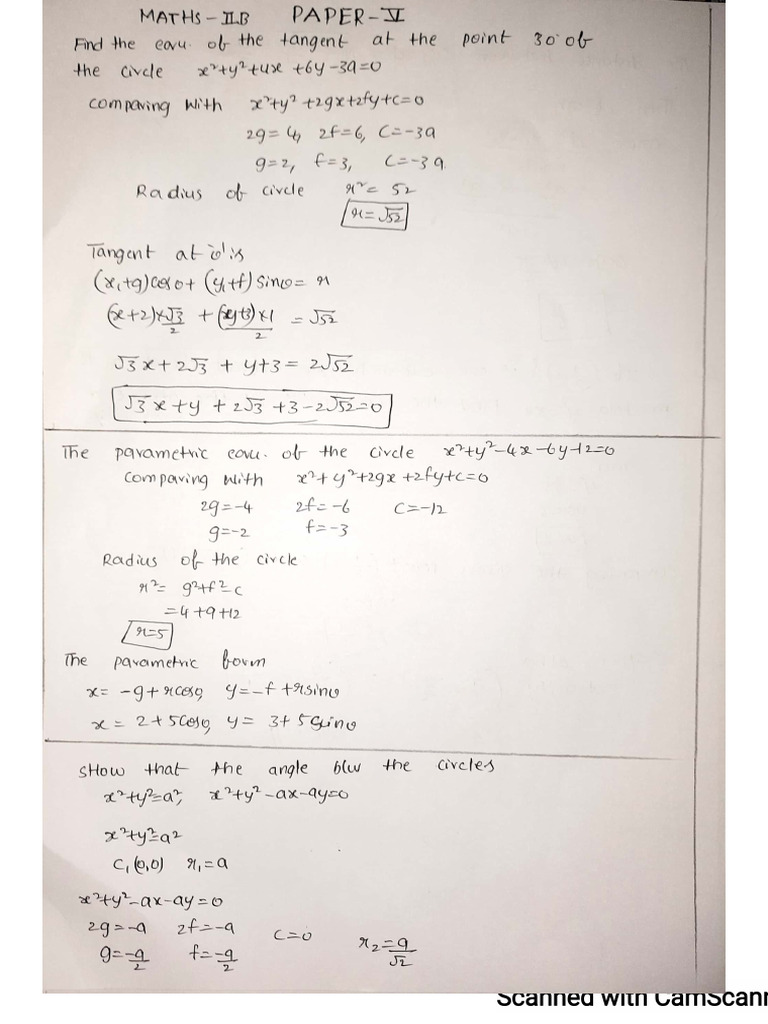 MATHS - II.B PAPER - V
Find the eqvu. of the tangent at the point 30° of
the circle x²+y²+4x+6y-39=0
comparing with x²+y²+2gx+2fy+c=0
2g=4, 2f=6, C=-39
g=2, f=3, C=-39
Radius of circle r²= 52
r=√52
Tangent at 'θ' is
(x₁+g)cosθ+ (y₁+f) sinθ= r
(x+2)×√3/2 + (y+3)×1/2 = √52
√3x+2√3 + y+3= 2√52
√3x+y+2√3+3-2√52=0
The parametric eqvu. of the circle x²+y²-4x-6y-12=0
Comparing with x²+y²+2gx+2fy+c=0
2g=-4 2f=-6 C=-12
g=-2 f=-3
Radius of the circle
r²= g²+f²-c
=4+9+12
r=5
The parametric form
x= -g+rcosθ, y=-f+rsinθ
x= 2+5cosθ, y= 3+5sinθ
SHow that the angle b/w the circles
x²+y²=a², x²+y²-ax-ay=0
x²+y²=a²
C₁(0,0) r₁=a
x²+y²-ax-ay=0
2g=-a 2f=-a C=0 r₂=a/√2
g=-a/2 f=-a/2
Scanned with CamScann